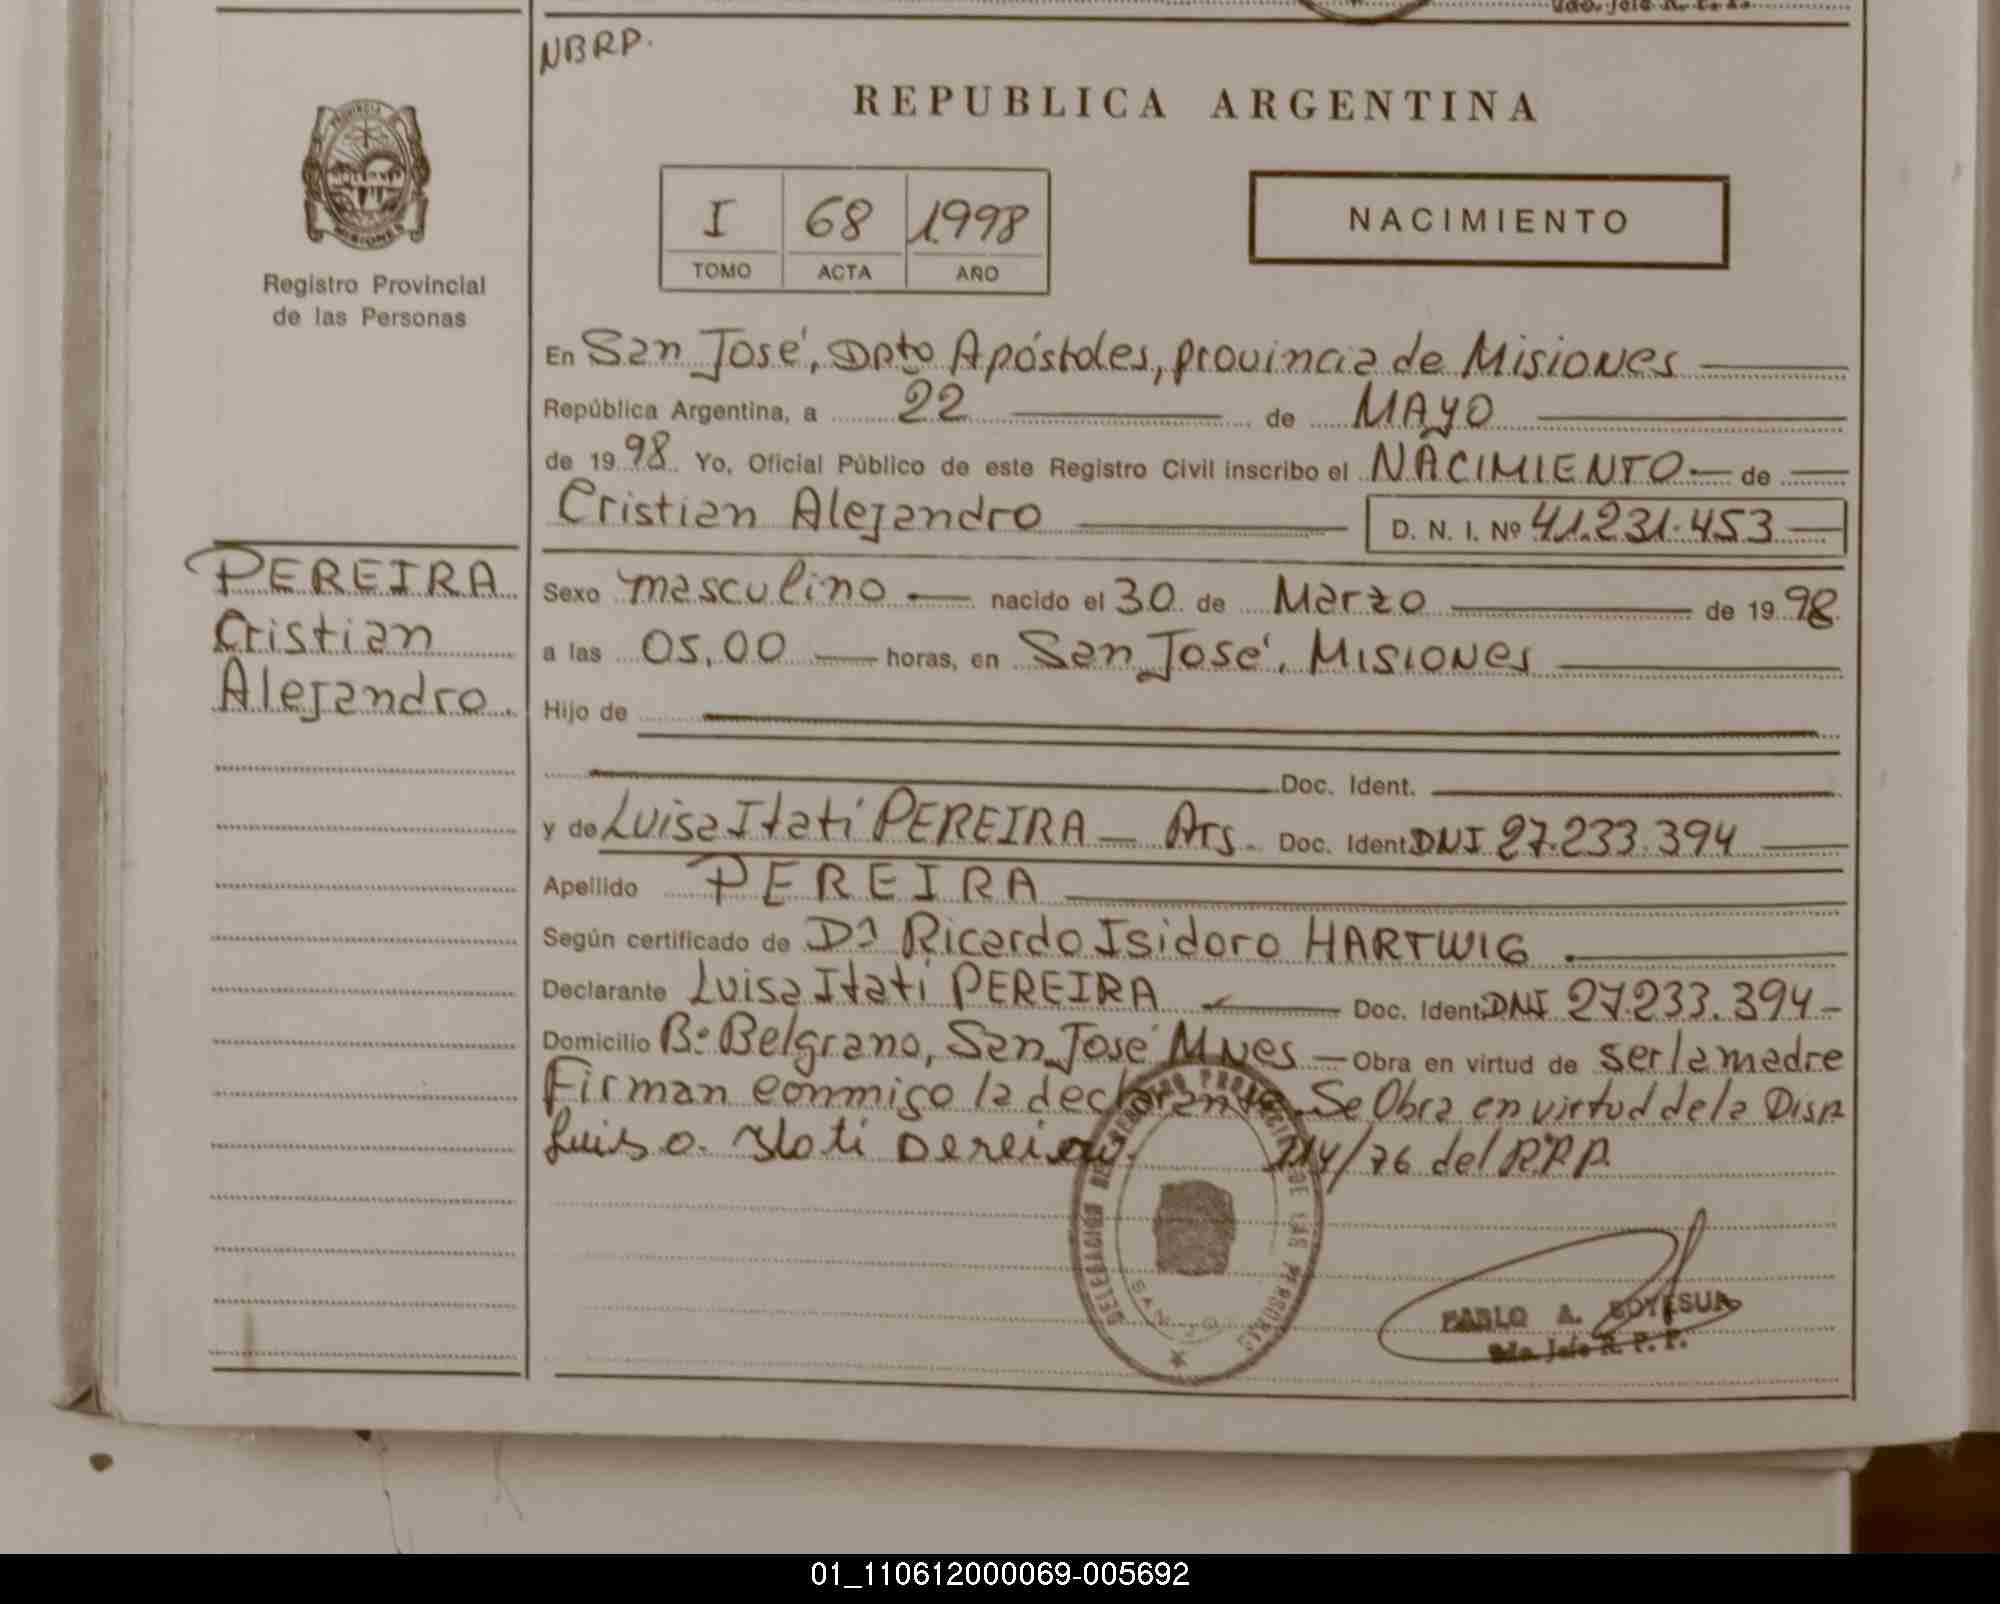 NBRP.
REPUBLICA ARGENTINA
PROVINCIA
MISIONES
I 68 1998
TOMO ACTA AÑO
NACIMIENTO
Registro Provincial
de las Personas
En San José, Dpto Apóstoles, provincia de Misiones
República Argentina, a 22 de MAYO
de 1998 Yo, Oficial Público de este Registro Civil inscribo el NACIMIENTO de
Cristian Alejandro D. N. I. Nº 41.231.453
PEREIRA
Cristian
Alejandro.
Sexo masculino nacido el 30 de Marzo de 1998
a las 05,00 horas, en San José, Misiones
Hijo de
Doc. Ident.
y de Luisa Itatí PEREIRA Arg. Doc. Ident DNI 27.233.394
Apellido PEREIRA
Según certificado de Dr Ricardo Isidoro HARTWIG
Declarante Luisa Itatí PEREIRA Doc. Ident DNI 27.233.394
Domicilio Bº Belgrano, San José Mnes Obra en virtud de ser la madre
Firman conmigo la declarante. Se Obra en virtud de la Disp.
Luisa Itati Pereira 114/76 del R.P.P.
DELEGACION DEL REGISTRO PROVINCIAL DE LAS PERSONAS
SAN JO
PABLO A.
2do. Jefe R. P. P.
01_110612000069-005692